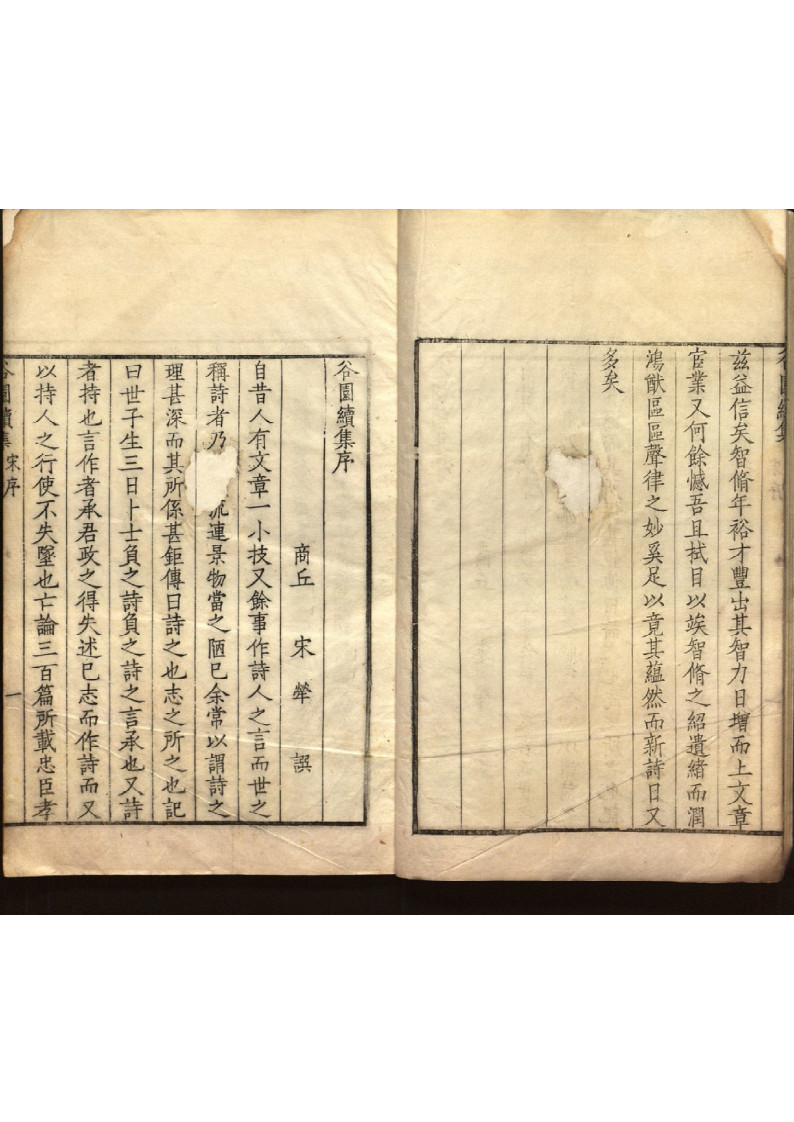 茲益信矣智脩年裕才豐出其智力日增而上文章
官業又何餘憾吾且拭目以竢智脩之紹遺緒而潤
鴻猷區區聲律之妙奚足以竟其蘊然而新詩日又
多矣
谷園續集序
商丘 宋犖 譔
自昔人有文章一小技又餘事作詩人之言而世之
稱詩者乃流連景物當之陋已余常以謂詩之
理甚深而其所係甚鉅傳曰詩之也志之所之也記
曰世子生三日卜士負之詩負之詩之言承也又詩
者持也言作者承君政之得失述已志而作詩而又
以持人之行使不失墜也亡論三百篇所載忠臣孝
谷園續集 宋序 一